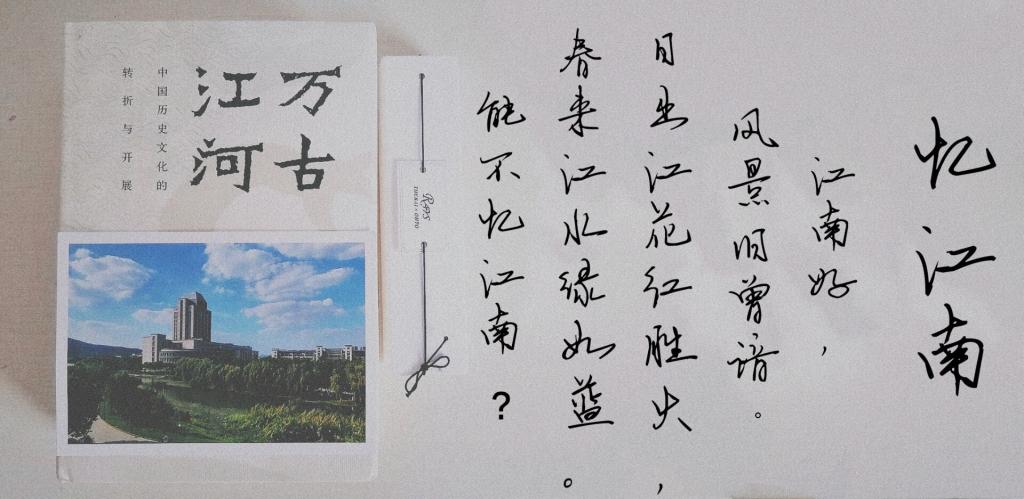 忆江南
江南好，
风景旧曾谙。
日出江花红胜火，
春来江水绿如蓝。
能不忆江南？
万古
江河
中国历史文化的
转折与开展